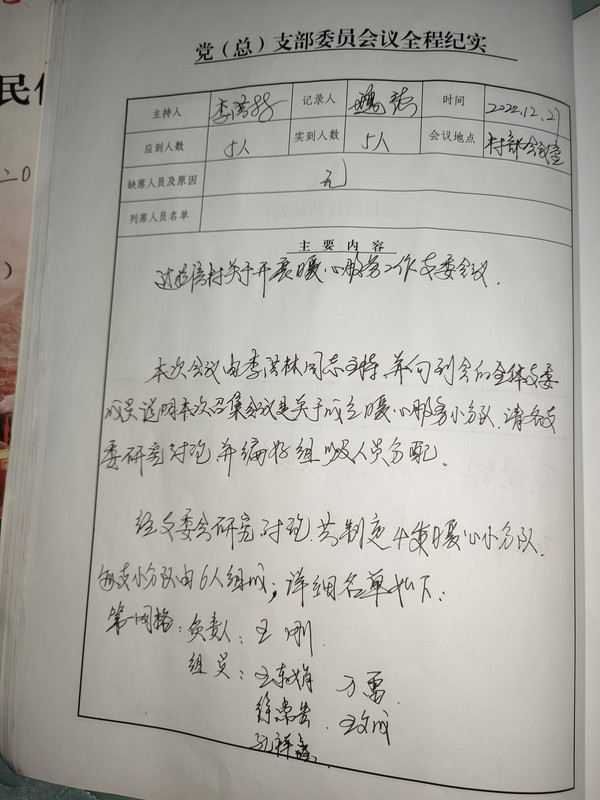 党（总）支部委员会议全程纪实
主持人 李洪林 记录人 时间 2022.12.27
应到人数 5人 实到人数 5人 会议地点 村部会议室
缺席人员及原因 无
列席人员名单
主要内容
村关于开展暖心服务工作支委会议.
本次会议由李洪林同志主持,并向到会的全体支委
成员说明本次召集会议是关于成立暖心服务小分队.请各支
委研究讨论并编好组以及人员分配.
经支委会研究讨论.共制定4支暖心小分队.
每支小分队由6人组成;详细名单如下:
第一网格:负责人:王刚
组员:王东 万勇
徐 王文成
孔祥鑫
民
20
）